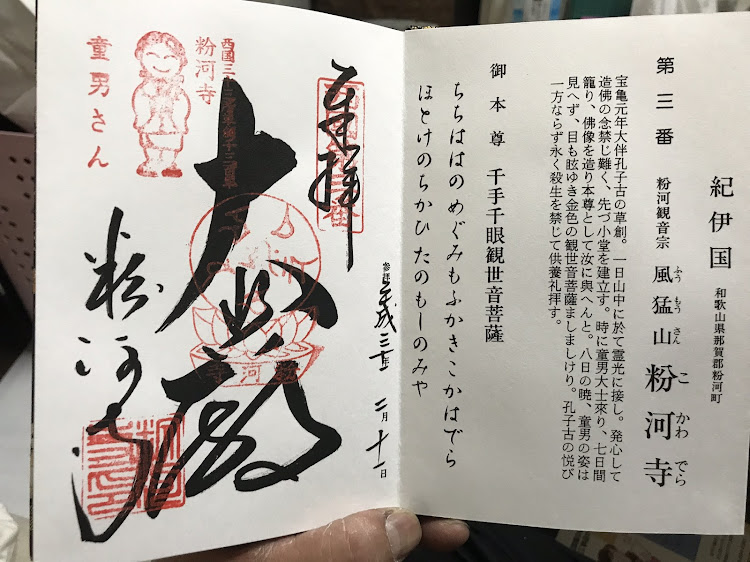 紀伊国 和歌山県那賀郡粉河町
第三番 粉河観音宗 風猛山 粉河寺
ふうもうさん こかわでら
宝亀元年大伴孔子古の草創。一日山中に於て霊光に接し。発心して
造佛の念禁じ難く、先づ小堂を建立す。時に童男大士來り、七日間
籠り、佛像を造り本尊として汝に與へんと。八日の暁、童男の姿は
見へず、目も眩ゆき金色の観世音菩薩ましましけり。孔子古の悦び
一方ならず永く殺生を禁じて供養礼拝す。
御本尊 千手千眼観世音菩薩
ちちははのめぐみもふかきこかはでら
ほとけのちかひたのもしのみや
参拝 平成三十 二月十一日
奉拝
大悲殿
粉河寺
西国三十三所草創千三百年
粉河寺
童男さん
粉河寺